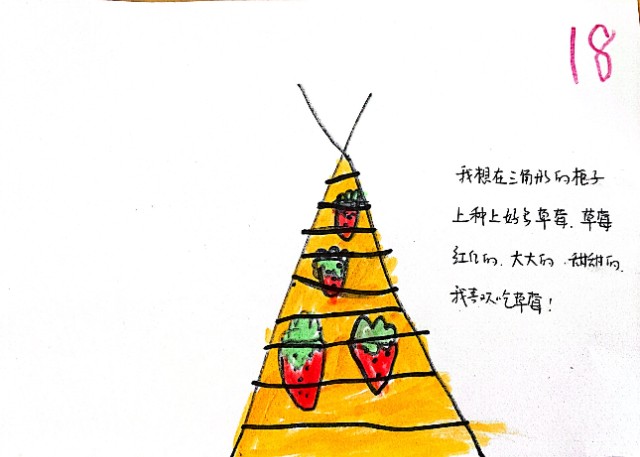 18
我想在三角形的袍子
上种上好多草莓、草莓
红红的、大大的、甜甜的、
我喜欢吃草莓！